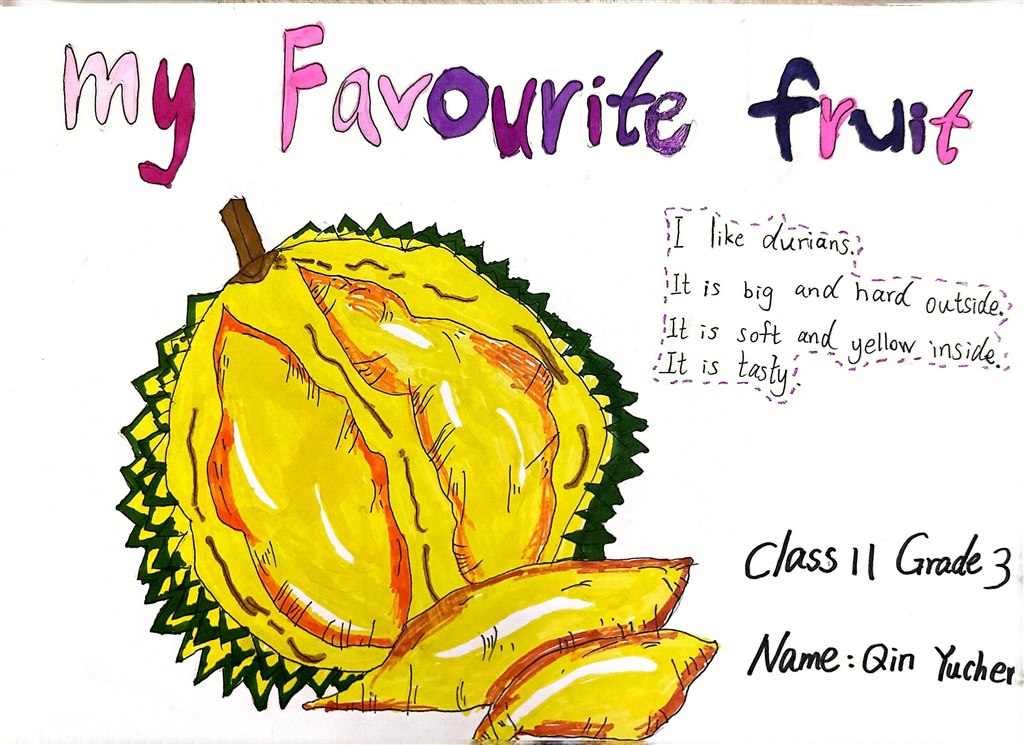 my Favourite fruit
I like durians.
It is big and hard outside.
It is soft and yellow inside.
It is tasty.
Class 11 Grade 3
Name: Qin Yucher